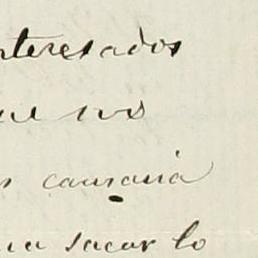 nteresados
ue nos
s causaria
ua sacar lo